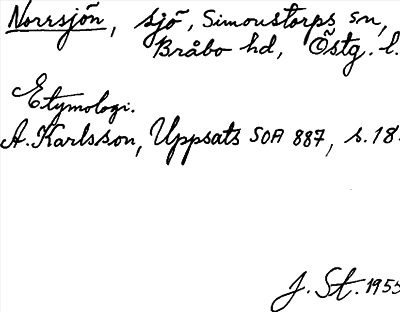 Norrsjön, sjö, Simonstorps sn,
Bråbo hd, Östg. l.
Etymologi.
A. Karlsson, Uppsats SOA 887, s. 18.
J. St. 1955